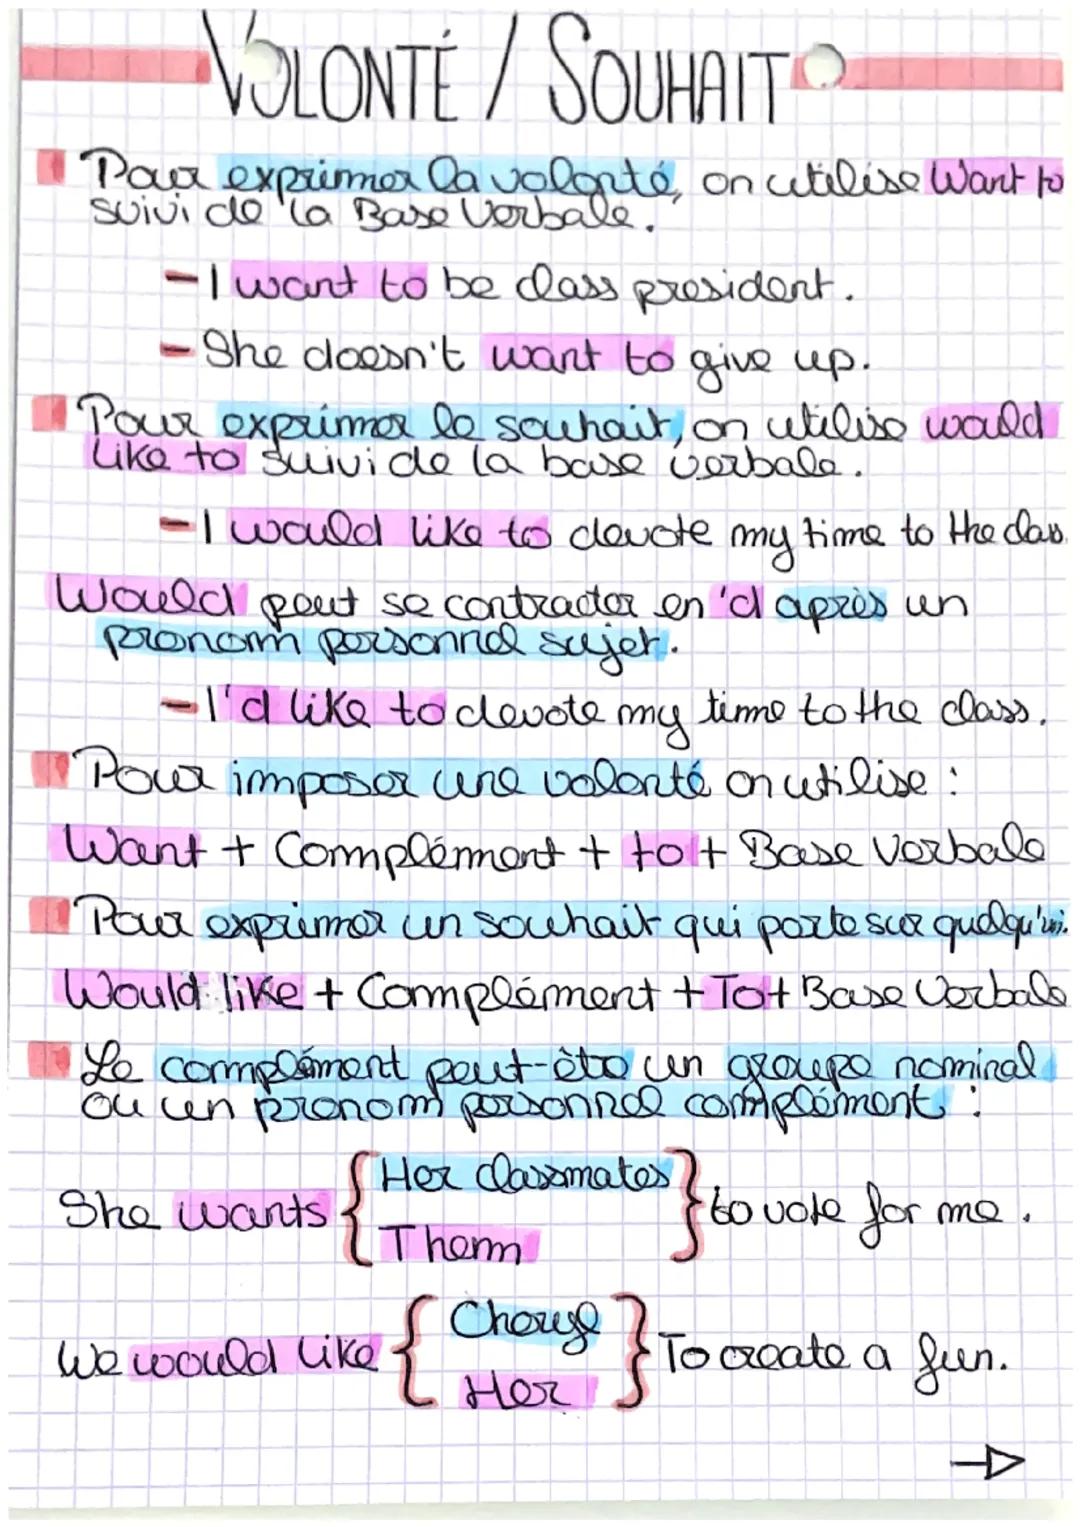 VOLONTÉ / SOUHAIT
Pour exprimer la volonté, on utilise Want to
suivi de la Base Verbale.
- I want to be class president.
- She doesn't want to give up.
Pour exprimer le souhait, on utilise would
like to suivi de la base verbale.
- I would like to devote my time to the class.
Would peut se contracter en 'd après un
pronom personnel sujet.
- I'd like to devote my time to the class.
Pour imposer une volonté on utilise :
Want + Complément + to + Base Verbale
Pour exprimer un souhait qui porte sur quelqu'un.
Would like + Complément + To + Base Verbale
Le complément peut-être un groupe nominal
ou un pronom personnel complément :
She wants { Her classmates } to vote for me.
Them
We would like { Cheryl } To create a fun.
Her